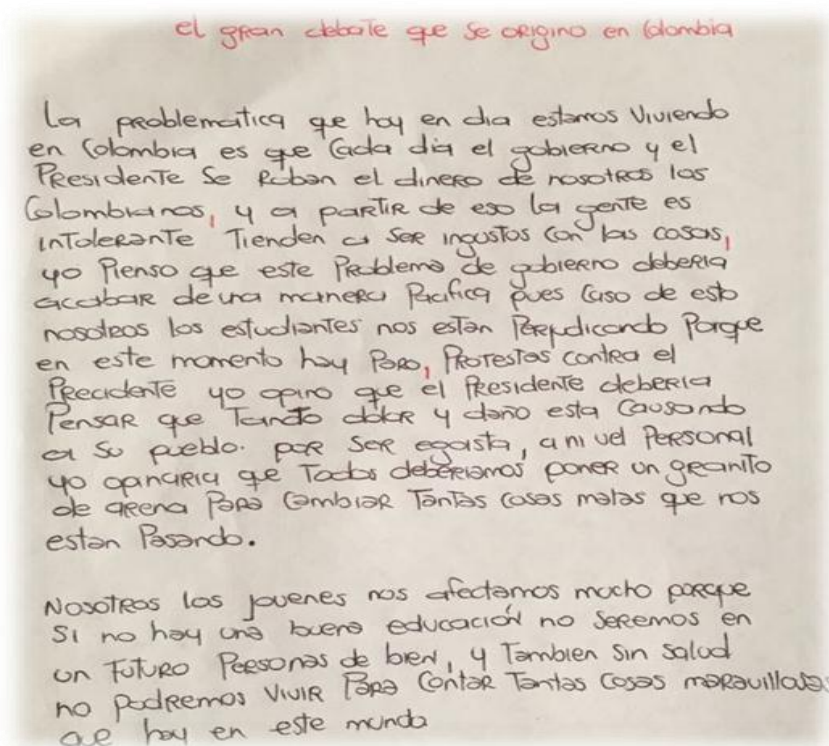 el gran debate que se origino en Colombia
La problematica que hoy en dia estamos viviendo
en Colombia es que Cada dia el gobierno y el
Presidente Se Roban el dinero de nosotros los
Colombianos, y a partir de eso la gente es
intolerante Tienden a ser ingustos con las cosas,
yo Pienso que este Problema de gobierno deberia
acabar de una manera Pacifica pues Caso de esto
nosotros los estudiantes nos estan Perjudicando Porque
en este momento hay Paro, Protestas contra el
Precidente yo opino que el Presidente deberia
Pensar que Tanto dolor y daño esta Causando
a Su pueblo. por ser egoista, a nivel Personal
yo opinaria que Todos deberiamos poner un granito
de arena Para Cambiar Tantas Cosas malas que nos
estan Pasando.
Nosotros los jovenes nos afectamos mucho porque
Si no hay una buena educación no Seremos en
un Futuro Personas de bien, y Tambien Sin Salud
no Podremos Vivir Para Contar Tantas Cosas maravillosas
que hay en este mundo